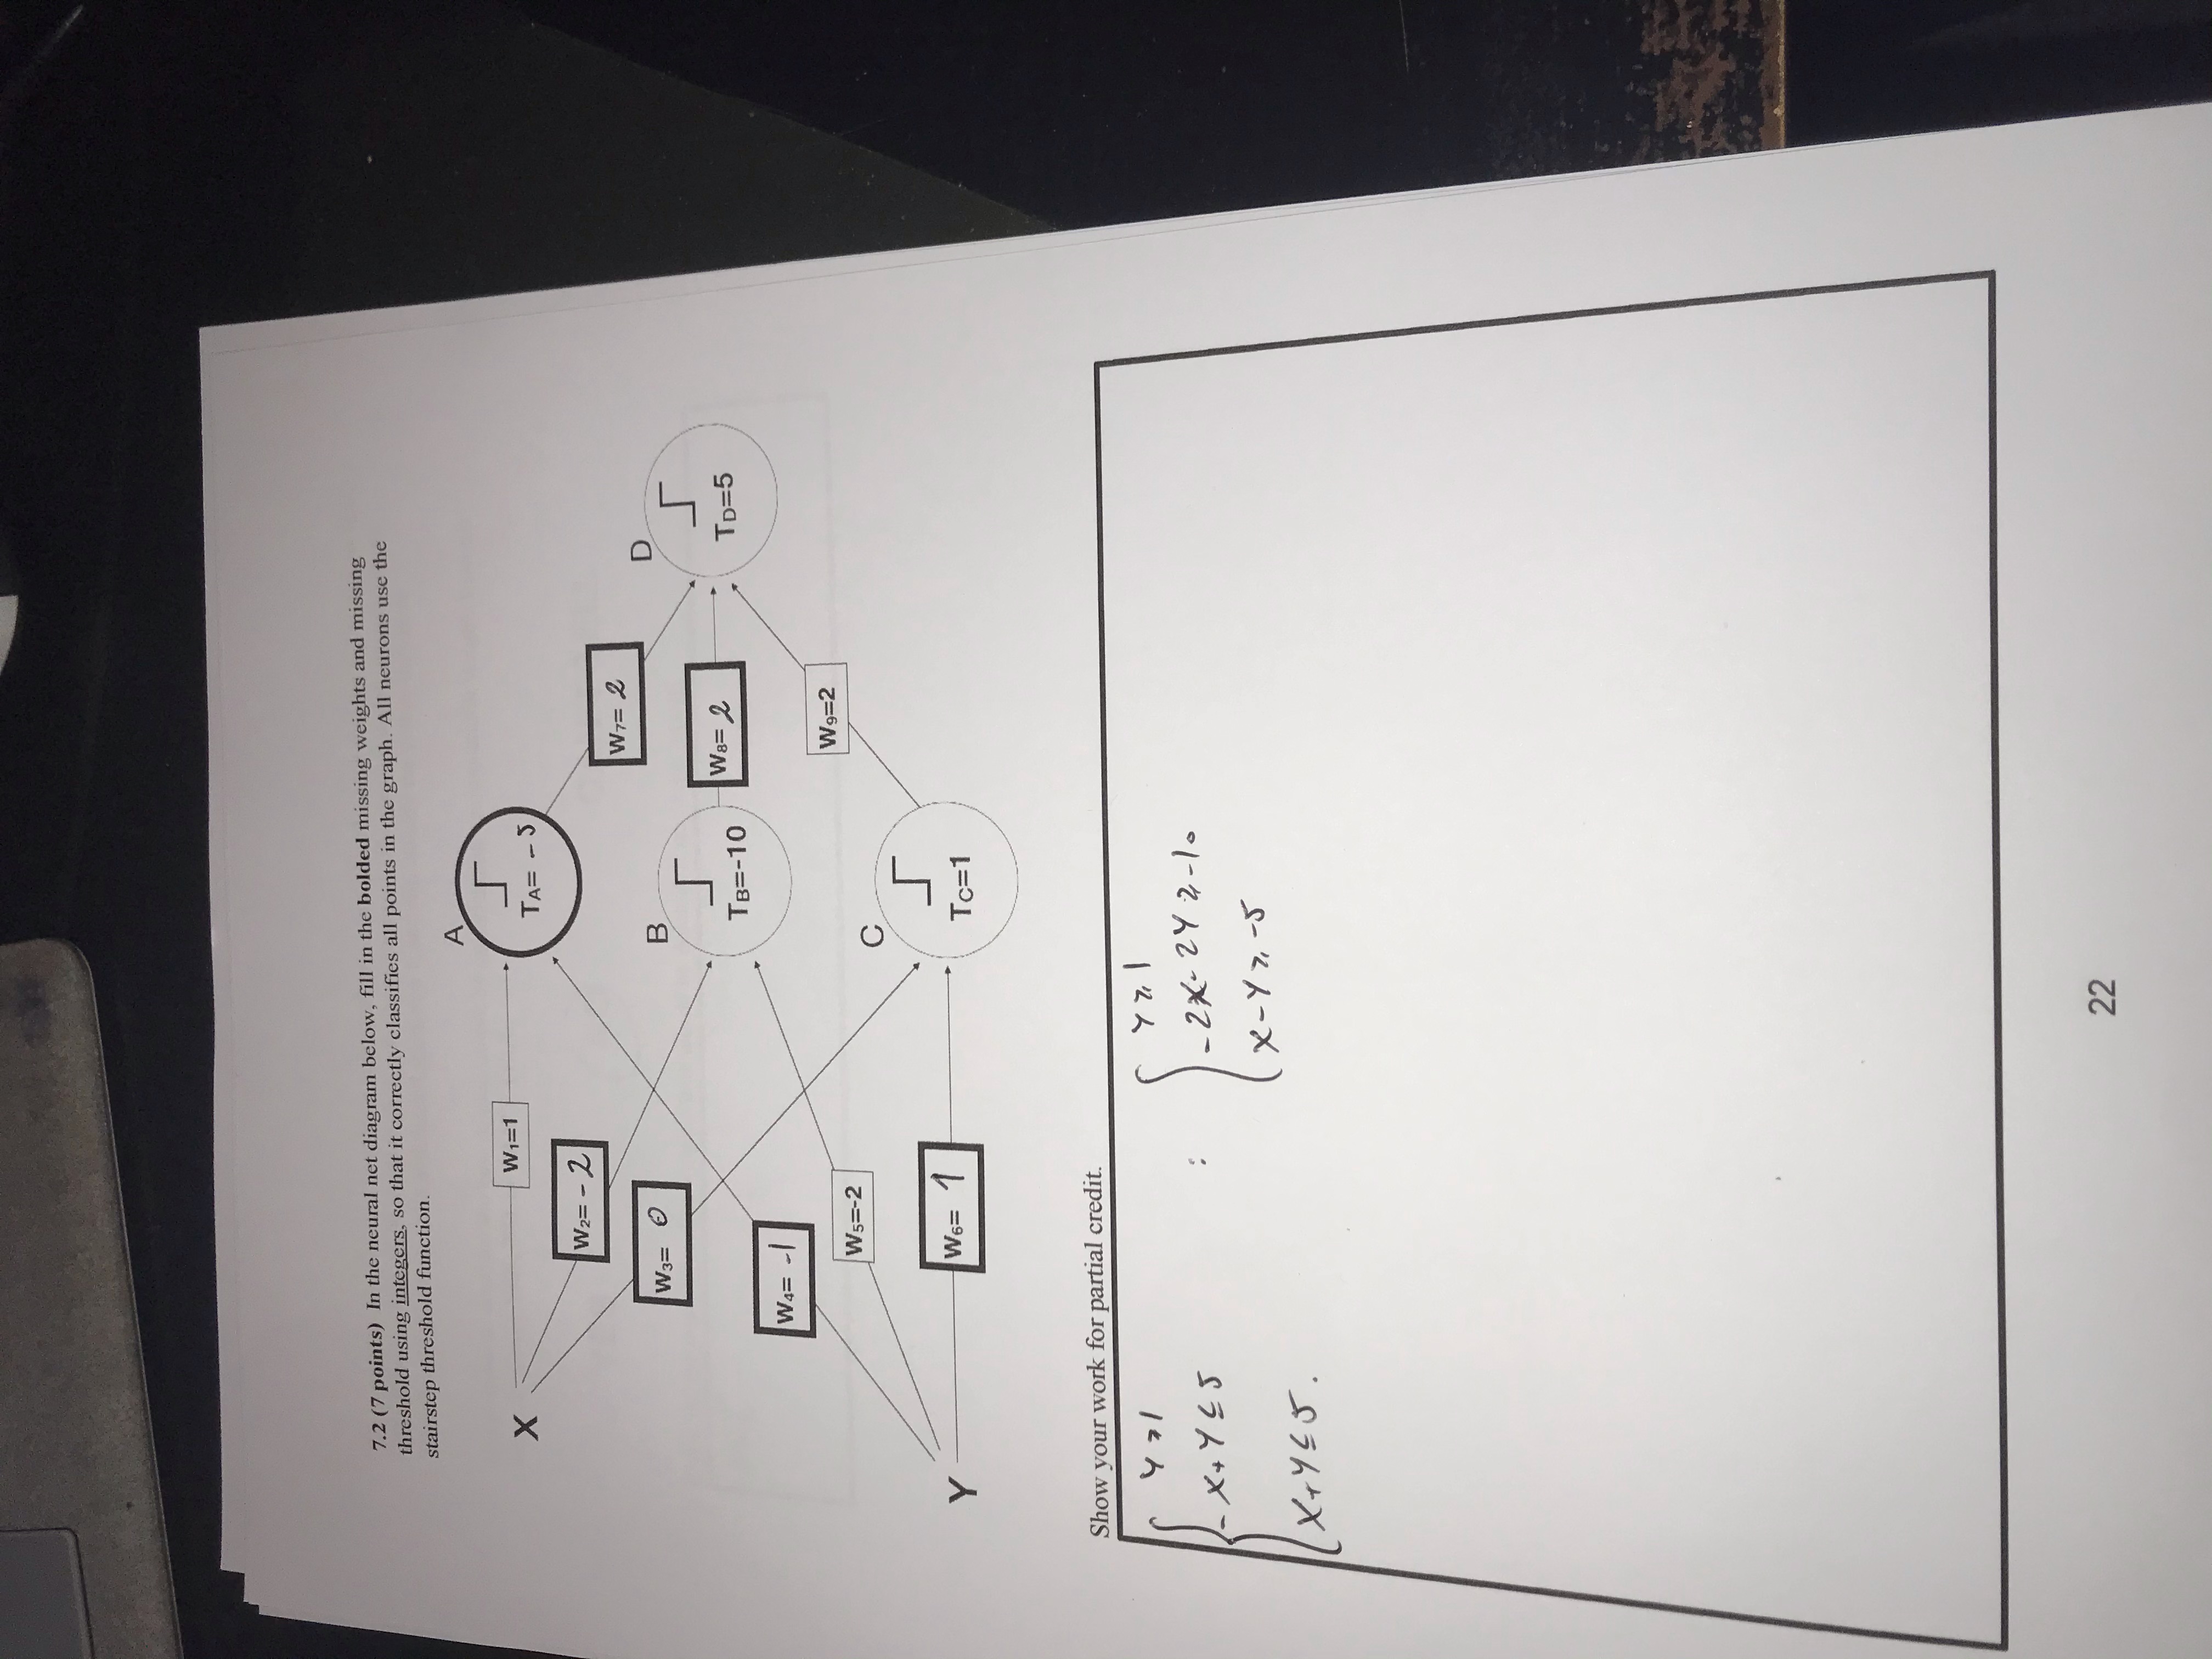 7.2 (7 points) In the neural net diagram below, fill in the bolded missing weights and missing
threshold using integers, so that it correctly classifies all points in the graph. All neurons use the
stairstep threshold function.
A
X
W1=1
TA= -5
W2= -2
W7= 2
W3= 0
B
D
TB=-10
W8= 2
TD=5
W4= -1
W9=2
W5=-2
C
Y
W6= 1
TC=1
Show your work for partial credit.
Y ≥ 1
-X+Y ≤ 5
X+Y ≤ 5.
:
Y ≥ 1
-2X-2Y ≥ -10
X-Y ≥ -5
22